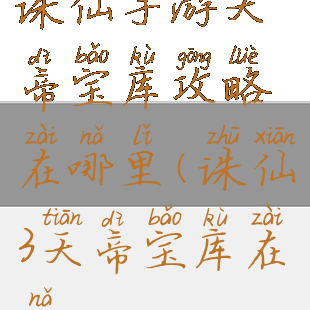 诛仙手游天
dì bǎo kù gōng lüè
帝宝库攻略
zài nǎ lǐ zhū xiān
在哪里(诛仙
tiān dì bǎo kù zài
3天帝宝库在
nǎ